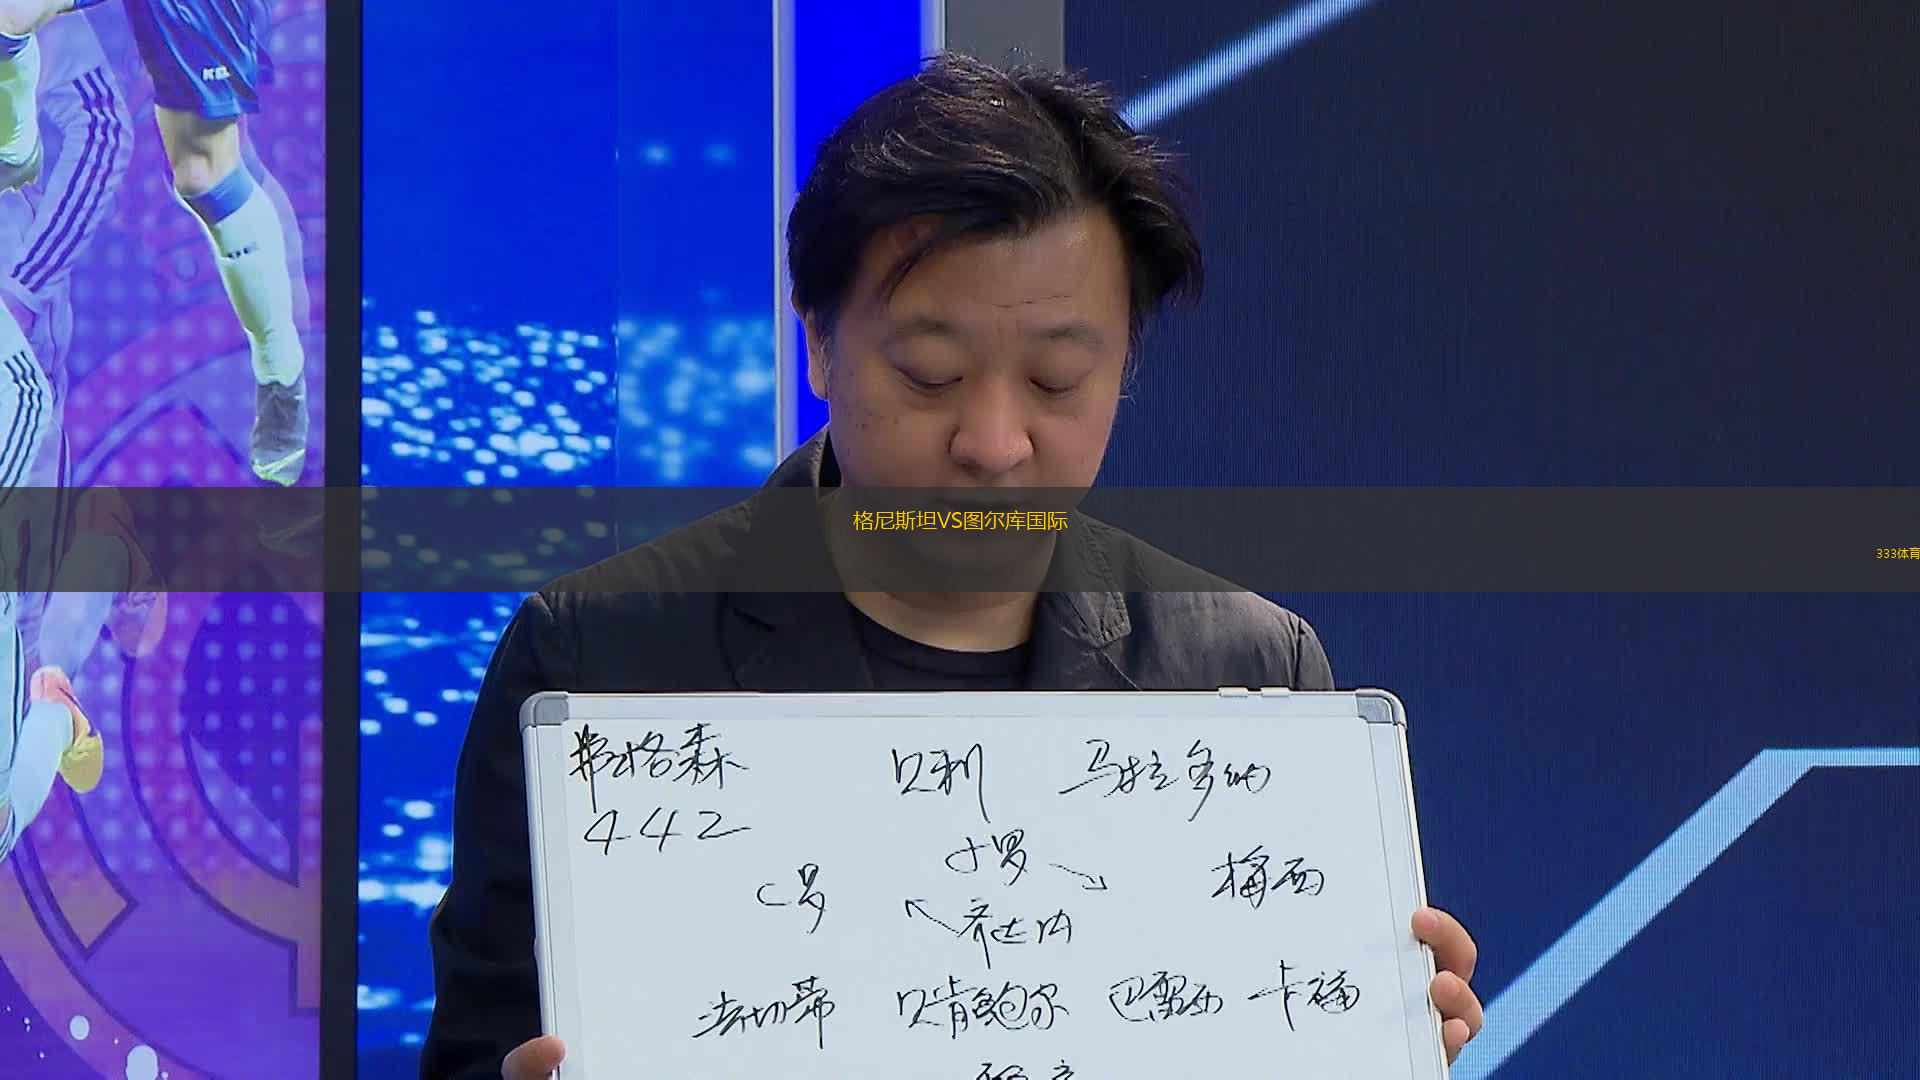 格尼斯坦VS图尔库国际
333体育
弗格森 贝利 马拉多纳
442
小罗
C罗 梅西
齐达内
法切蒂 贝肯鲍尔 巴雷西 卡福